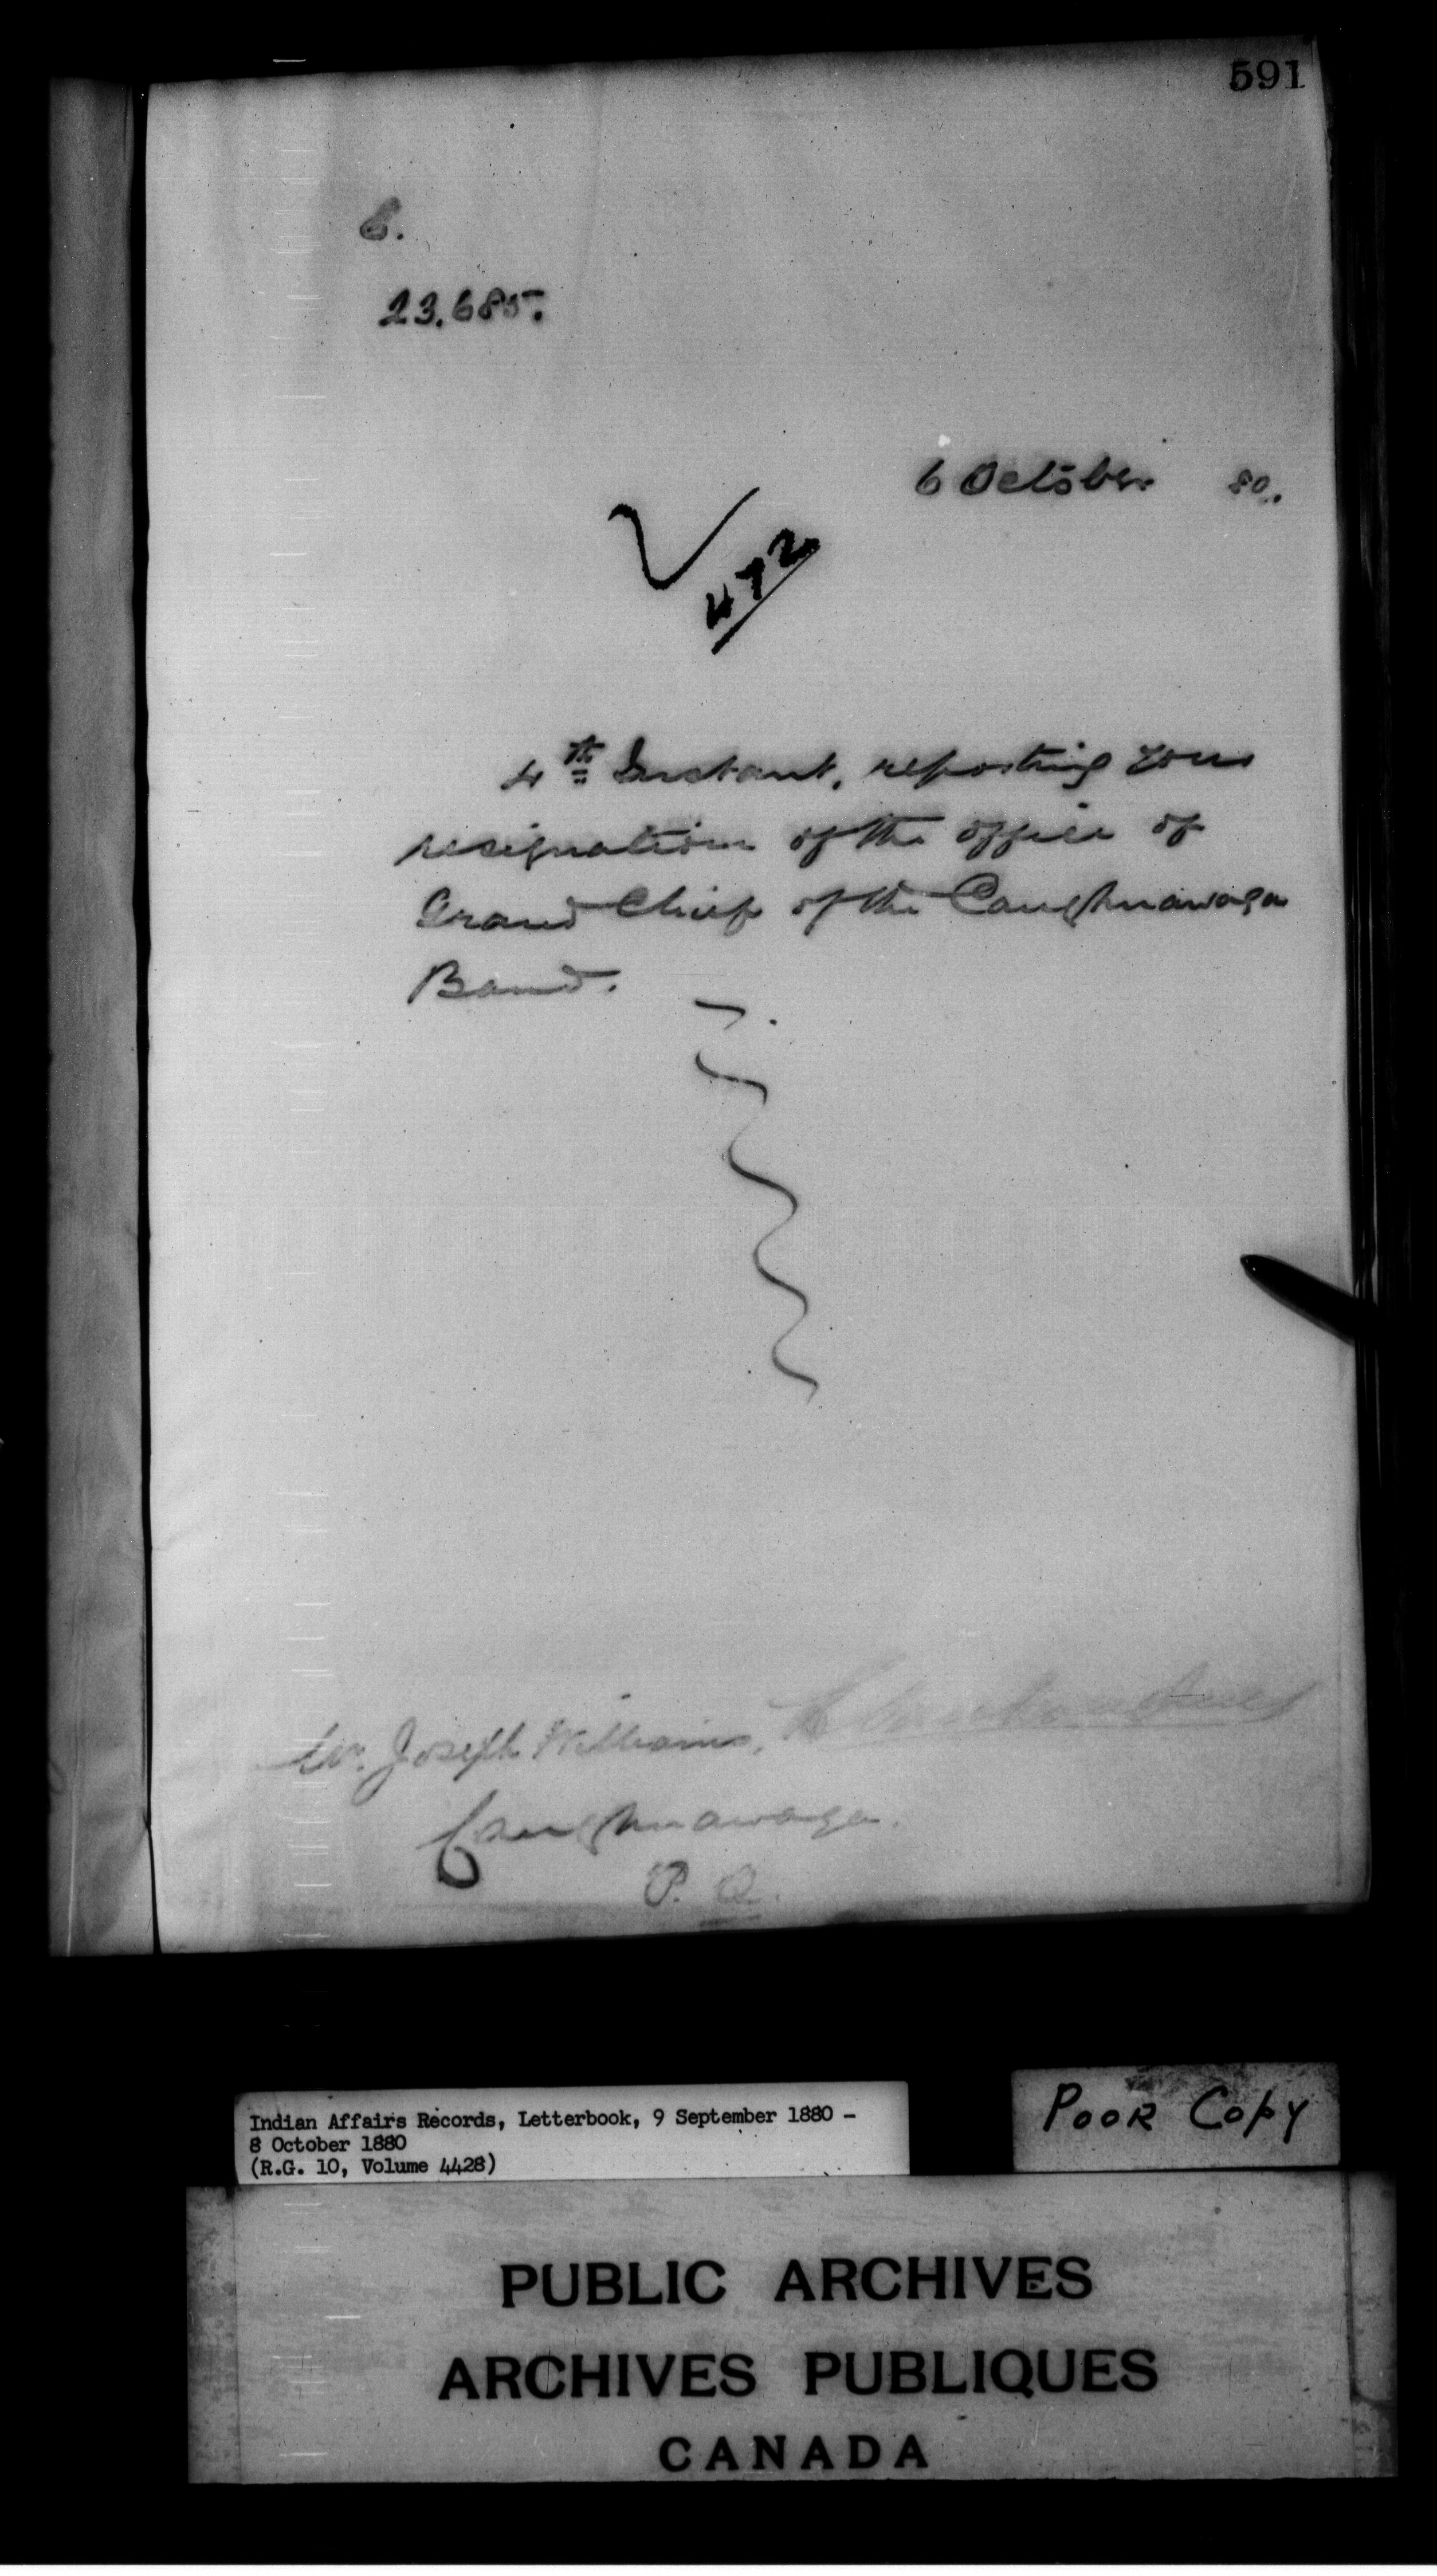 591
23.685.
6 October 80.
472
4th Instant, reporting your
resignation of the office of
Grand Chief of the Caughnawaga
Band.
Mr. Joseph Williams,
Caughnawaga.
P. Q.
Indian Affairs Records, Letterbook, 9 September 1880 -
8 October 1880
(R.G. 10, Volume 4428)
POOR COPY
PUBLIC ARCHIVES
ARCHIVES PUBLIQUES
CANADA